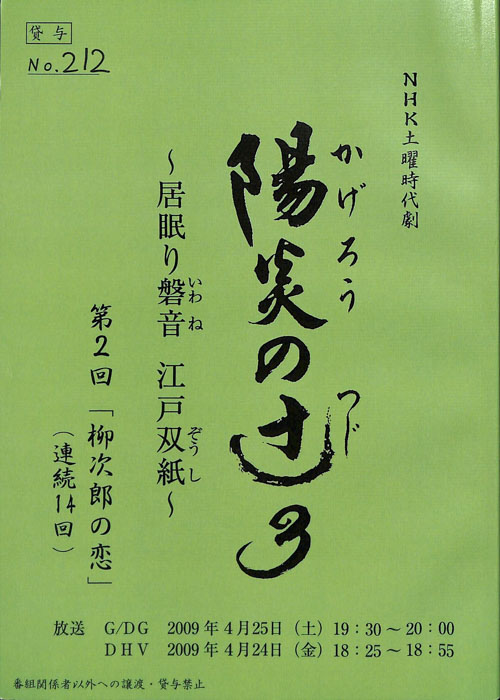 貸与
No.212
NHK土曜時代劇
かげろう
つじ
陽炎の辻3
いわね
ぞうし
～居眠り磐音 江戸双紙～
第2回「柳次郎の恋」
（連続14回）
放送 G/DG 2009年4月25日（土）19：30～20：00
DHV 2009年4月24日（金）18：25～18：55
番組関係者以外への譲渡・貸与禁止